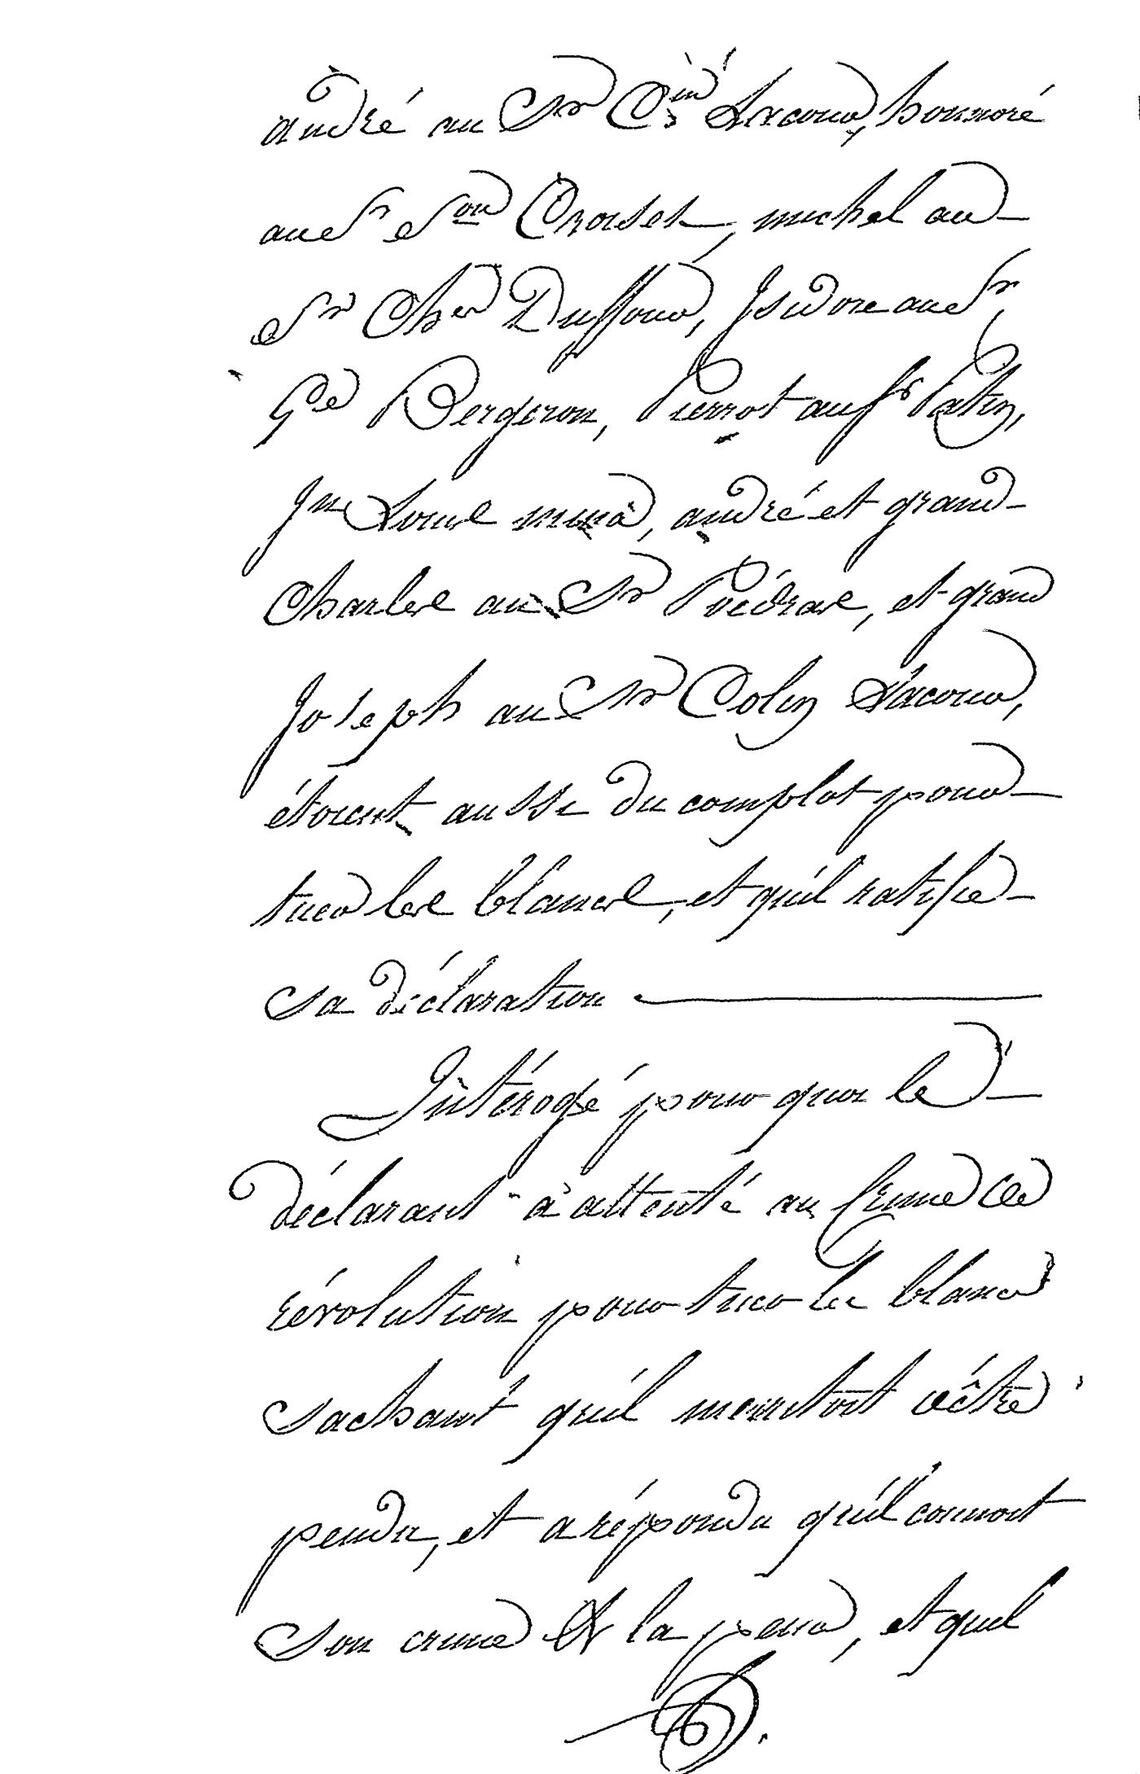 andré au Sr Cin Lacour, honnoré
au Sr Son Croiset, michel au
Sr Cher Duffour, Isidore au Sr
Gme Bergeron, Pierrot au Sr Patin,
Jn Louis mina, andré et grand
Charles au Sr Poédras, et grand
Joseph au Sr Colin Lacour,
étoient aussi du complot pour
tuer les blancs, et qu'il ratifie
sa déclaration
Intérogé pourquoi le
déclarant à attenté au Crime de
révolution pour tuer les blancs
sachant qu'il merritoit d'être
pendu, et a répondu qu'il connoit
son crime & la peine, et qu'il